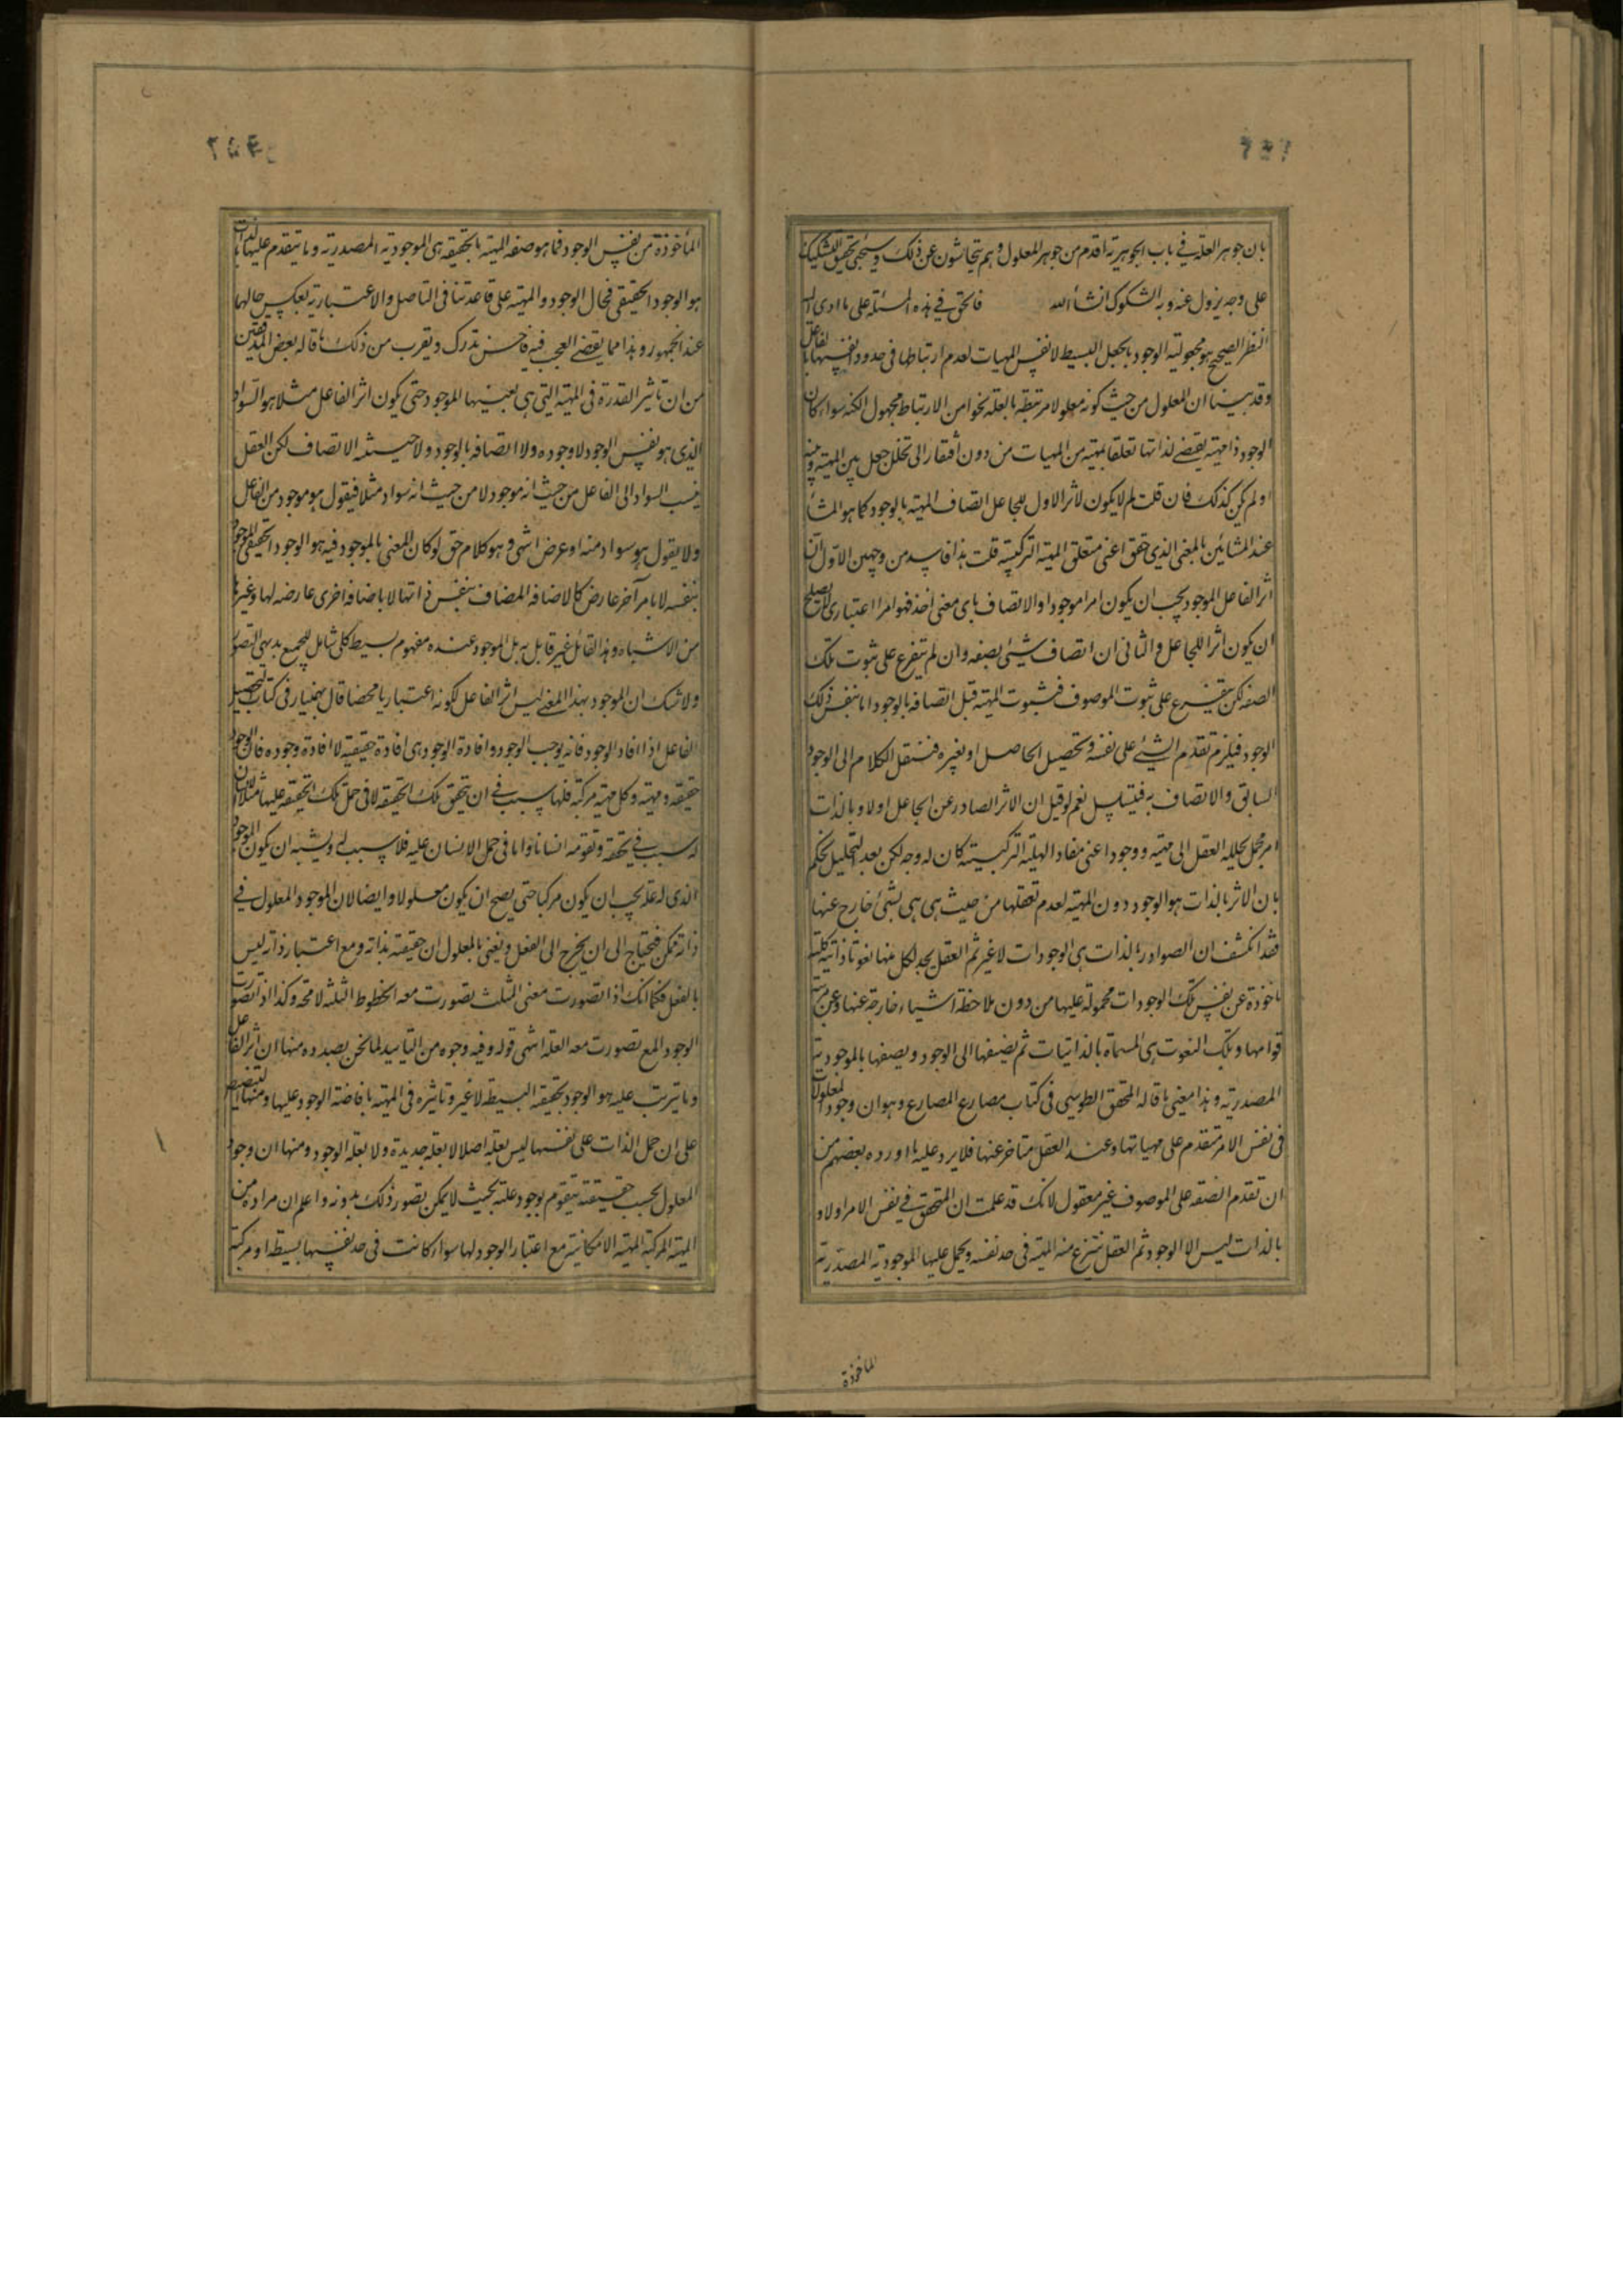 بان جوهر العلة في باب الجوهرية اقدم من جوهر المعلول وهم يتحاشون عن ذلك وسيجئ تحقيق التشكيك
على وجه يزول عنه وبه الشكوك انشاء الله فالحق في هذه المسئلة على ما ادى اليه
النظر الصحيح هو مجعولية الوجود بالجعل البسيط لا نفس المهيات لعدم ارتباطها في حدود انفسها بالفاعل
وقد بينا ان المعلول من حيث كونه معلولا مرتبط بالعلة نحوا من الارتباط مجهول الكنه سواء كان
الوجود ذا مهية يقتضي لذاتها تعلقا بمهية من المهيات من دون افتقار الى تخلل جعل بين المهية وبينه
او لم يكن كذلك فان قلت لم لا يكون لاثر الاول للجاعل اتصاف المهية بالوجود كما هو المشا
عند المشائين بالمعنى الذي حقق اعني متعلق الهيئة التركيبية قلت هذا فاسد من وجهين الاول ان
اثر الفاعل الموجود يجب ان يكون امرا موجودا والاتصاف باي معنى اخذ فهو امر اعتباري لا يصلح
ان يكون اثرا للجاعل والثاني ان اتصاف شيئ بصفة وان لم يتفرع على ثبوت تلك
الصفة لكن يتفرع على ثبوت الموصوف فثبوت المهية قبل اتصافه بالوجود اما بنفس ذلك
الوجود فيلزم تقدم الشيئ على نفسه وتحصيل الحاصل او بغيره فننقل الكلام الى الوجود
السابق والاتصاف به فيتسلسل نعم لو قيل ان الاثر الصادر عن الجاعل اولا وبالذات
امر مجمل يحلله العقل الى مهية ووجود اعني مفاد الهلية التركيبية كان له وجه لكن بعد التحليل نحكم
بان الاثر بالذات هو الوجود دون المهية لعدم تعلقها من حيث هى هى بشئ خارج عنها
فقد انكشف ان الصوادر بالذات هى الوجودات لا غير ثم العقل يجد لكل منها نعوتا ذاتية كلية
ماخوذة عن نفس تلك الوجودات محمولة عليها من دون ملاحظة اشياء خارجة عنها وعن مرتبة
قوامها وتلك النعوت هى المسماة بالذاتيات ثم يضيفها الى الوجود ويصفها بالموجودية
المصدرية وهذا معنى ما قاله المحقق الطوسي في كتاب مصارع المصارع وهو ان وجود المعلولات
في نفس الامر متقدم على مهياتها وعند العقل متاخر عنها فلا يرد عليه ما اورده بعضهم من
ان تقدم الصفة على الموصوف غير معقول لانك قد علمت ان المتحقق في نفس الامر اولا و
بالذات ليس الا الوجود ثم العقل ينتزع منه المهية في حد نفسه ويحمل عليها الموجودية المصدرية
الماخوذة
المأخوذة من نفس الوجود فما هو صفة المهية بالحقيقة هى الموجودية المصدرية وما يتقدم عليها بالذات
هو الوجود الحقيقي فحال الوجود والمهية على قاعدتنا في التاصل والاعتبارية بعكس حالهما
عند الجمهور وهذا مما يقضي العجب فيه فاحسن تدرك ويقرب من ذلك ما قاله بعض المدققين
من ان تاثير القدرة في المهية التي هى بعينها الموجود حتى يكون اثر الفاعل مثلا هو السواد
الذي هو نفس الوجود لا وجوده ولا اتصافه بالوجود ولا حيثية الاتصاف لكن العقل
ينسب السواد الى الفاعل من حيث انه موجود لا من حيث انه سواد مثلا فيقول هو موجود من الفاعل
ولا يقول هو سواد منه او عرض انتهى وهو كلام حق لو كان المعنى بالموجود فيه هو الوجود الحقيقي الموجود
بنفسه لا بامر آخر عارض كالاضافة المضاف بنفس ذاتها لا باضافة اخرى عارضة لها وغيرها
من الاشياء وهذا القائل غير قابل به بل الموجود عنده مفهوم بسيط كلي شامل للجميع بديهي التصور
ولا شك ان الموجود بهذا المعنى ليس اثر الفاعل لكونه اعتباريا محضا قال بهمنيار في كتاب التحصيل
الفاعل اذا افاد الوجود فانه يوجب الوجود وافادة الوجود هى افادة حقيقته لا افادة وجوده فان للوجود
حقيقة ومهية وكل مهية مركبة فلها سبب في ان يتحقق تلك الحقيقة لا في حمل تلك الحقيقة عليها مثلا الانسان
له سبب في تحققه وتقومه انسانا واما في حمل الانسان عليه فلا سبب له ويشبه ان يكون الموجود
الذي له علة يجب ان يكون مركبا حتى يصح ان يكون معلولا وايضا لان الموجود المعلول في
ذاته ممكن فيحتاج الى ان يخرج الى الفعل ونعني بالمعلول ان حقيقته بذاته ومع اعتبار ذاته ليس
بالفعل فكما انك اذا تصورت معنى المثلث تصورت معه الخطوط الثلثة لا محة وكذا اذا تصورت
الوجود المع تصورت معه العلة انتهى قوله وفيه وجوه من التاييد لما نحن بصدده منها ان اثر الفاعل
وما يترتب عليه هو الوجود بحقيقته البسيطة لا غير وتاثيره في المهية بافاضة الوجود عليها ومنها التنصيص
على ان حمل الذات على نفسها ليس بعلة اصلا لا بعلة جديدة ولا بعلة الوجود ومنها ان وجود
المعلول بحسب حقيقته يتقوم بوجود علته بحيث لا يمكن تصور ذلك بدونه واعلم ان مراده من
المهية المركبة المهية الامكانية مع اعتبار الوجود لها سواء كانت في حد نفسها بسيطة او مركبة